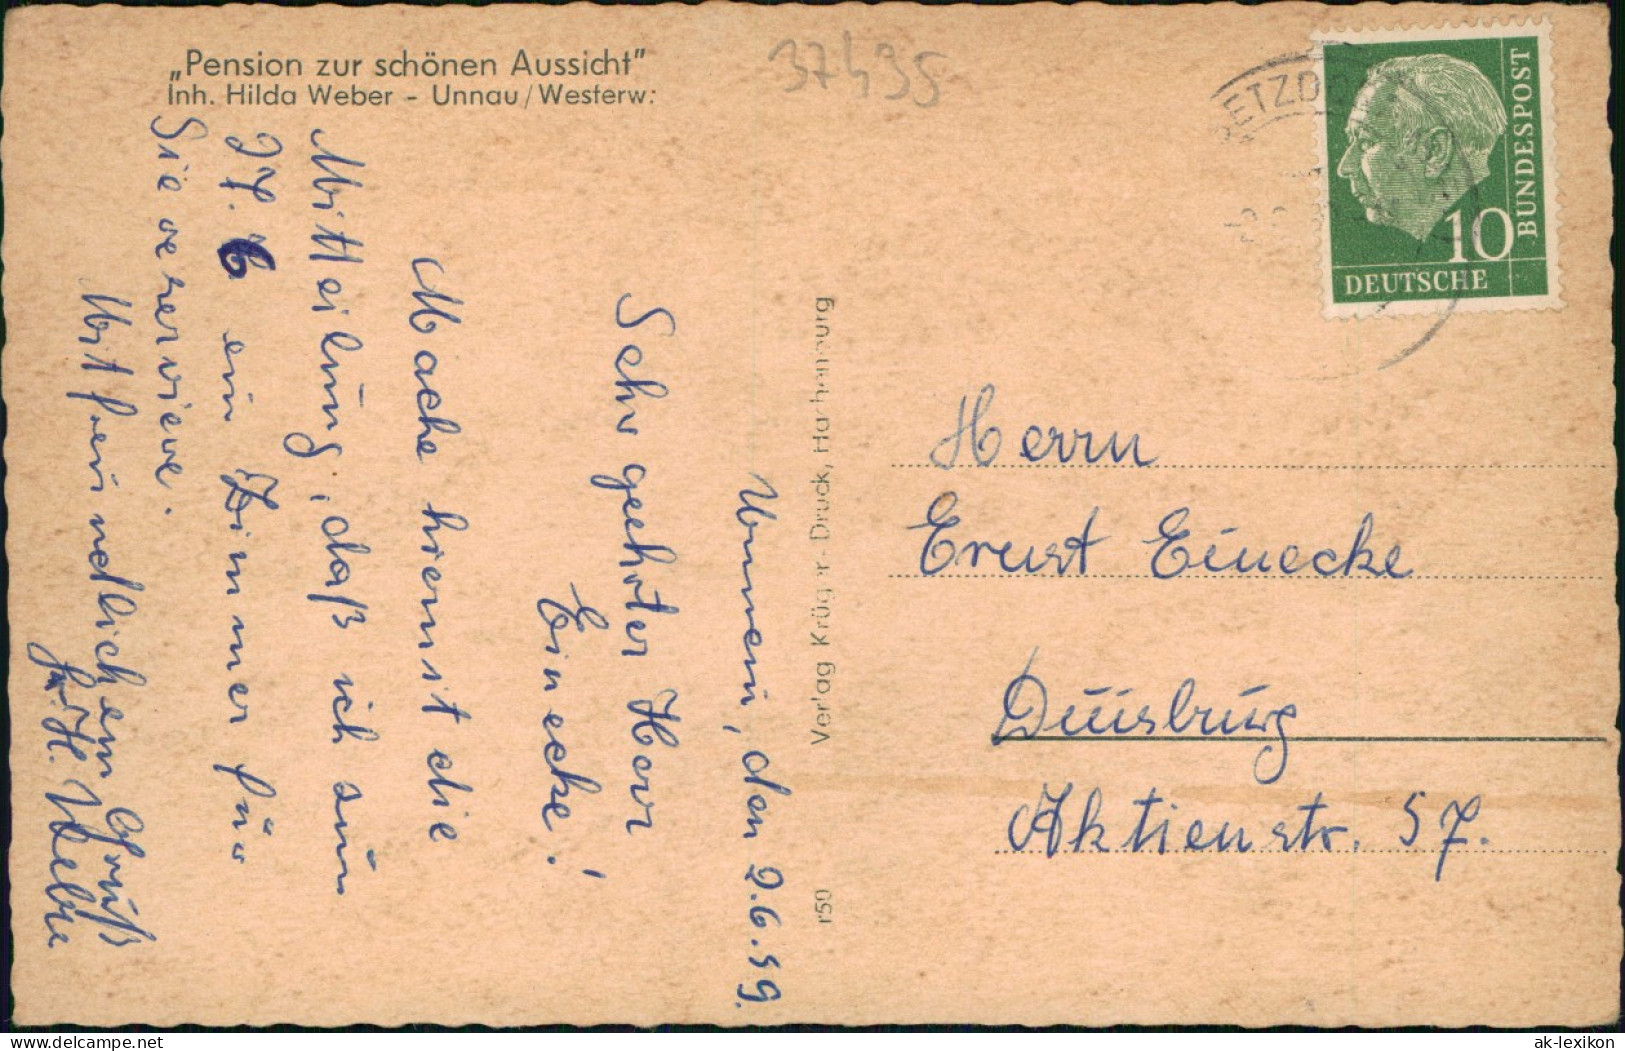 „Pension zur schönen Aussicht"
Inh. Hilda Weber - Unnau/Westerw:
37435
BETZDO
DEUTSCHE
BUNDESPOST
10
Unnau, den 2.6.59.
Sehr geehrter Herr
Einecke!
Mache hiermit die
Mitteilung, daß ich zum
27. 6 ein Zimmer für
Sie reserviere.
Mit freundlichem Gruß
Fr. H. Weber
Verlag Krüger - Druck,
r50
Herrn
Ernst Einecke
Duisburg
Aktienstr. 57.
ak-lexikon